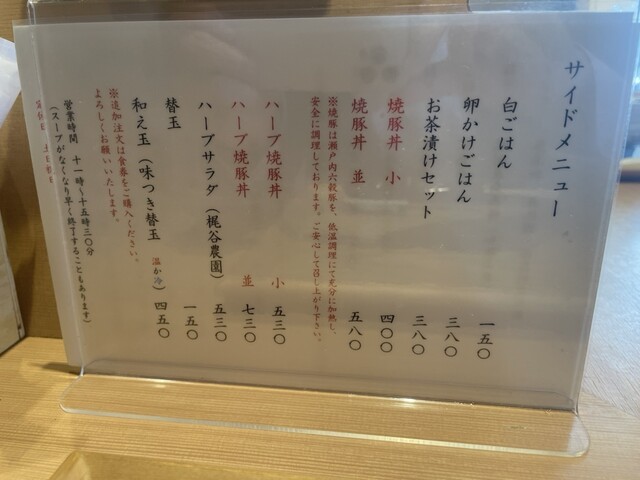 サイドメニュー
白ごはん 一五〇
卵かけごはん 三八〇
お茶漬けセット 三八〇
焼豚丼 小 四〇〇
焼豚丼 並 五八〇
※焼豚は瀬戸内六穀豚を、低温調理にて充分に加熱し、
安全に調理しております。ご安心して召し上がり下さい。
ハーブ焼豚丼 小 五三〇
ハーブ焼豚丼 並 七三〇
ハーブサラダ（梶谷農園） 五三〇
替玉 一五〇
和え玉（味つき替玉 温か冷） 四五〇
※追加注文は食券をご購入ください。
よろしくお願いいたします。
営業時間 十一時〜十五時三〇分
（スープがなくなり早く終了することもあります）
定休日